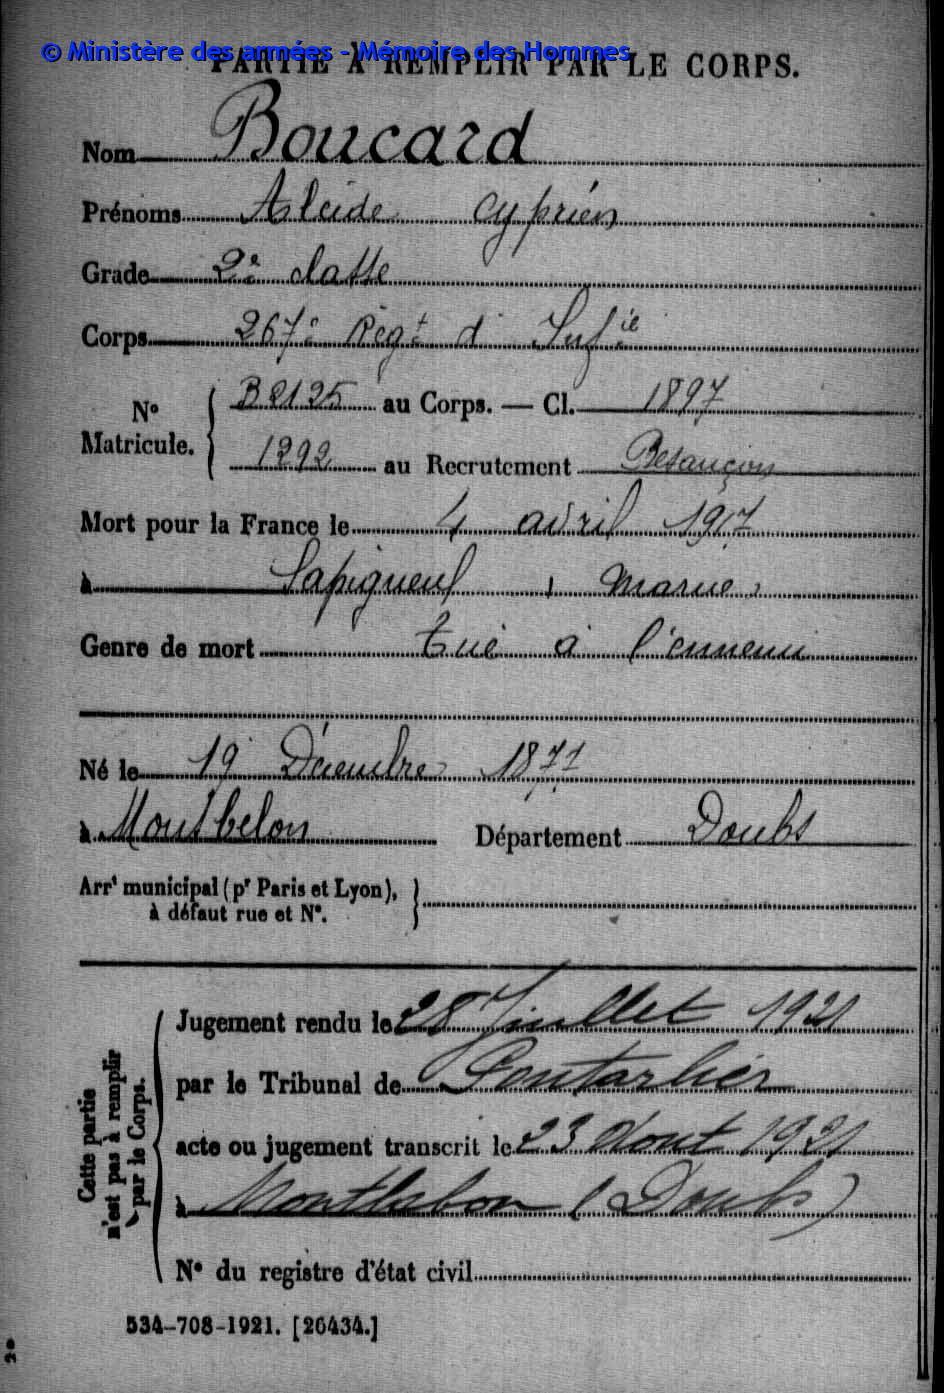 © Ministère des armées - Mémoire des Hommes
PARTIE À REMPLIR PAR LE CORPS.
Nom Boucard
Prénoms Alcide Cyprien
Grade 2e classe
Corps 267e Régt d'Infie
No Matricule. B2125 au Corps. — Cl. 1897
1292 au Recrutement Besançon
Mort pour la France le 4 avril 1917
à Sapigneul, Marne
Genre de mort tué à l'ennemi
Né le 19 Décembre 1877
à Montbelon Département Doubs
Arrt municipal (pr Paris et Lyon),
à défaut rue et No.
Cette partie n'est pas à remplir par le Corps.
Jugement rendu le 28 Juillet 1921
par le Tribunal de Pontarlier
acte ou jugement transcrit le 23 Aout 1921
à Montlebon (Doubs)
No du registre d'état civil
534-708-1921. [26434.]